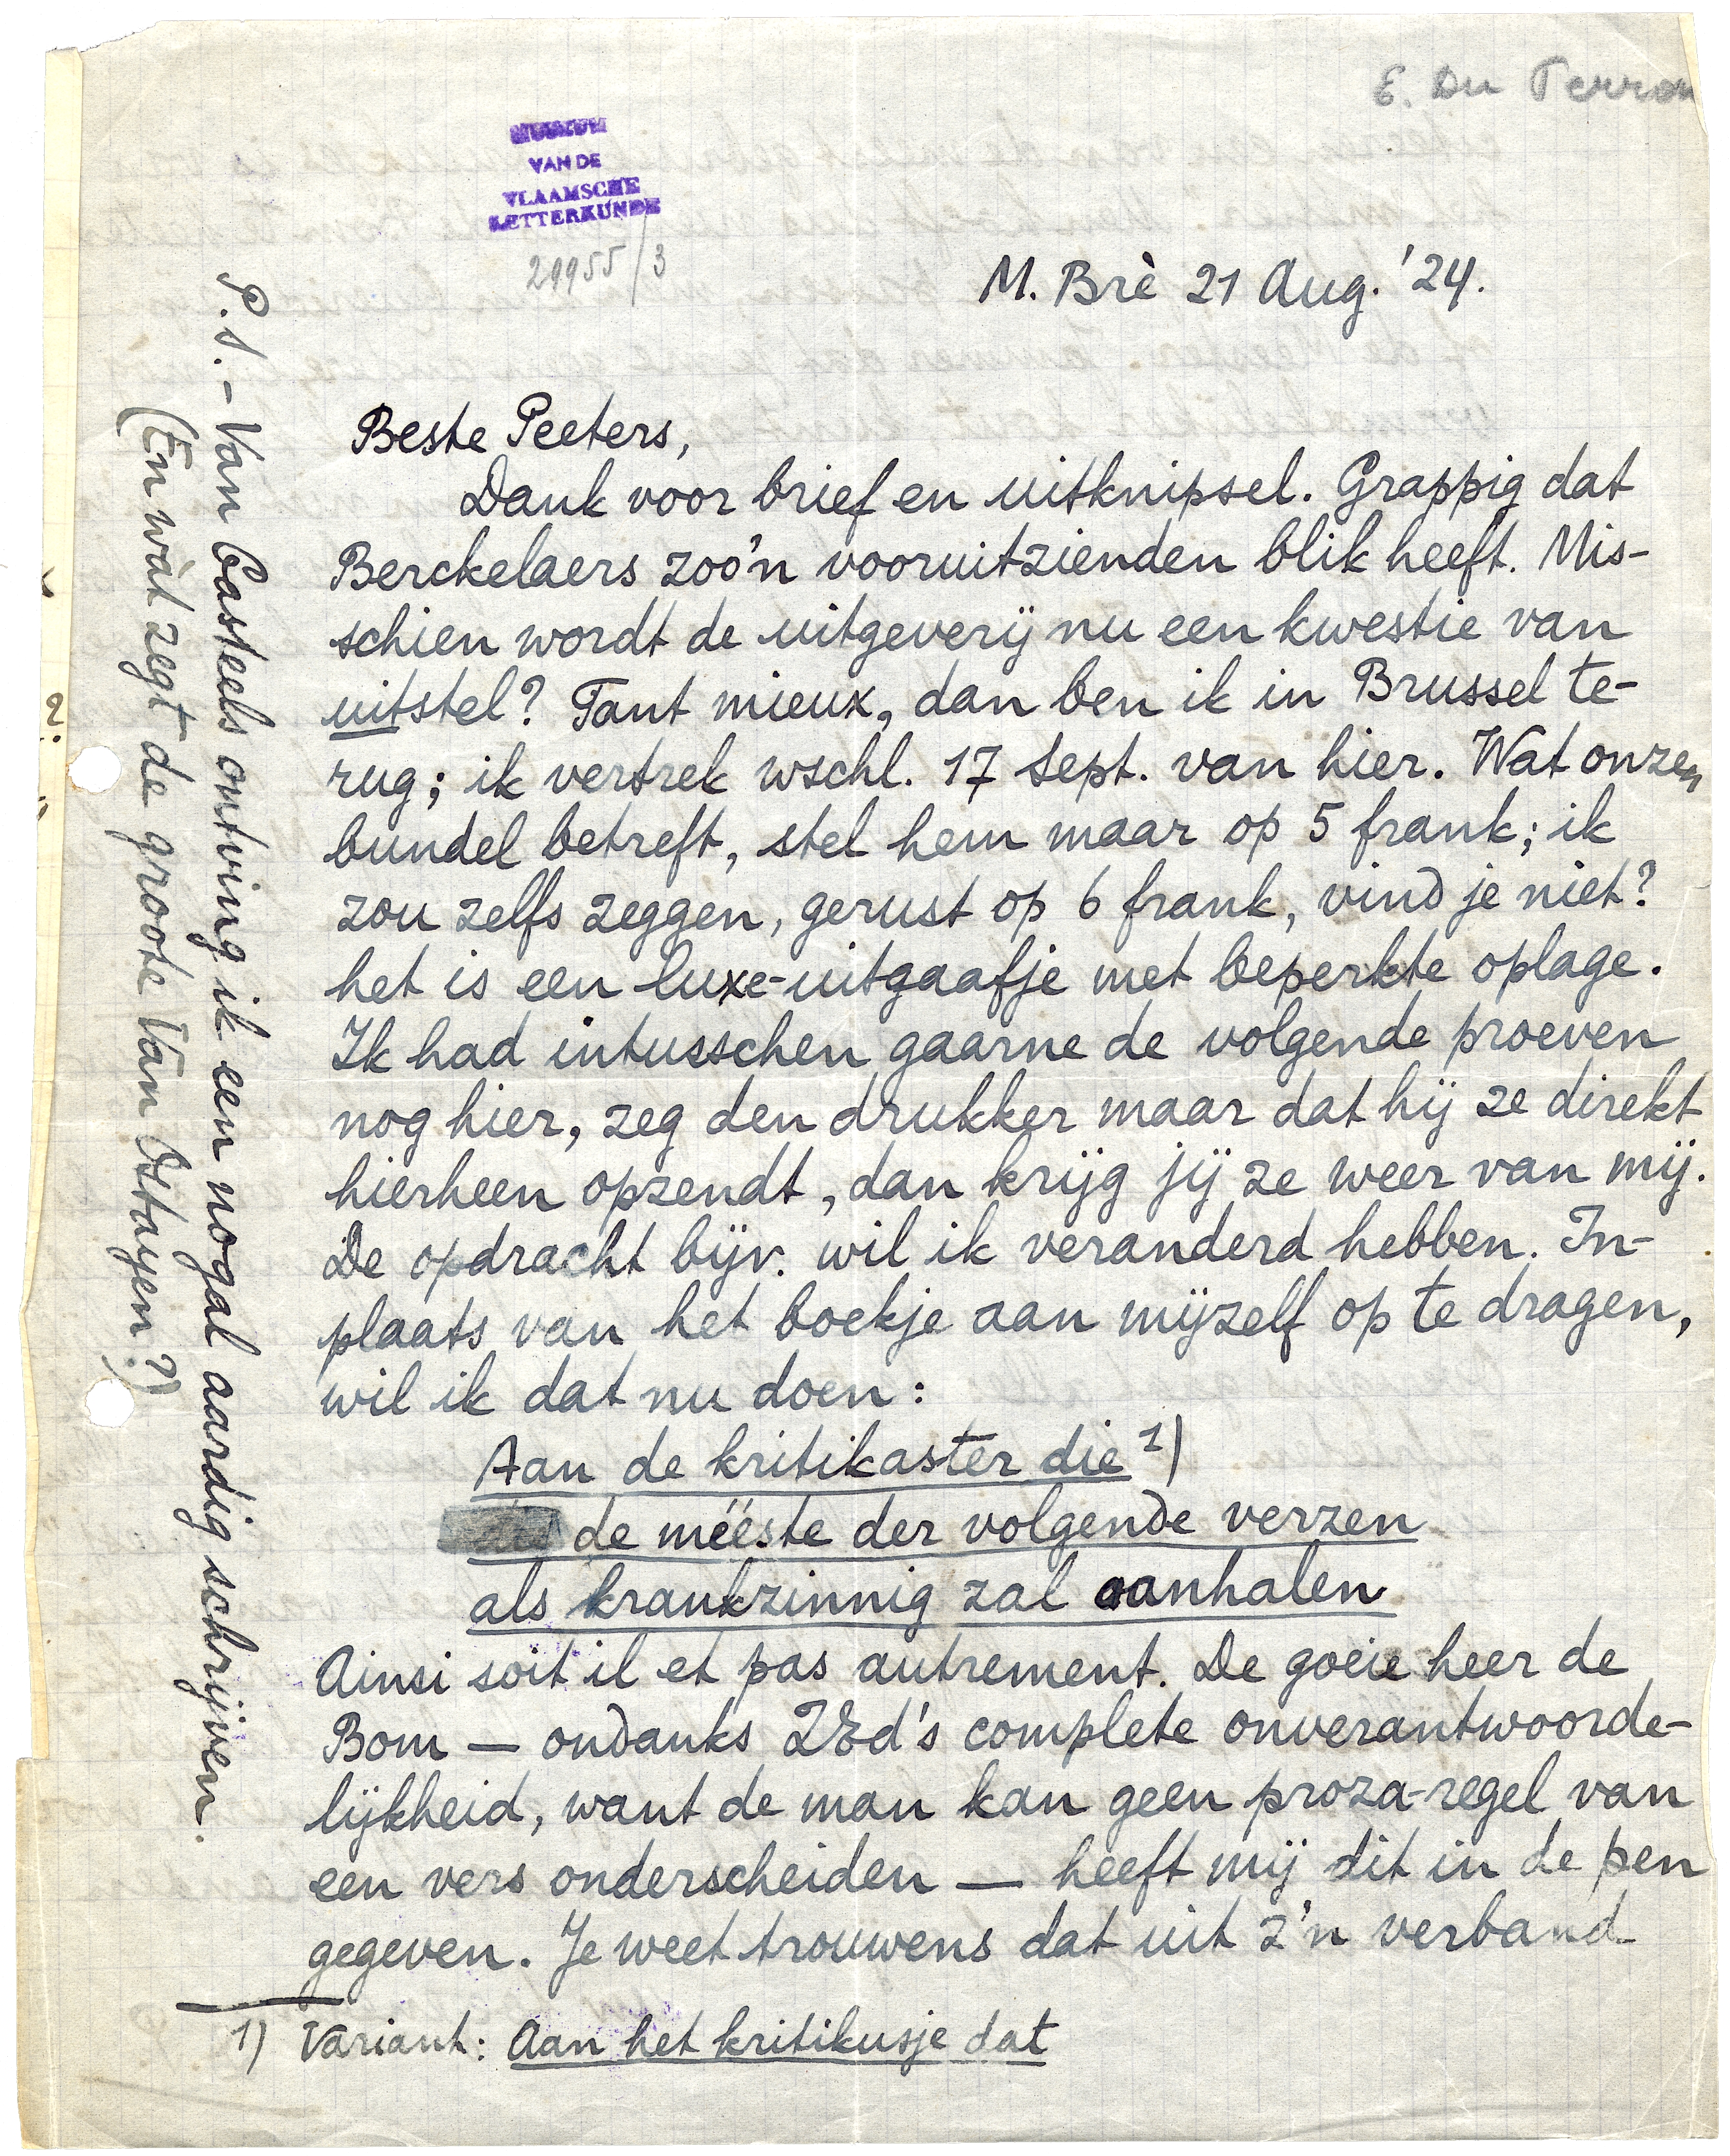 E. Du Perron
MUSEUM
VAN DE
VLAAMSCHE
LETTERKUNDE
29955/3
M. Brè 21 Aug. '24.
Beste Peeters,
Dank voor brief en uitknipsel. Grappig dat
Berckelaers zoo'n vooruitzienden blik heeft. Mis-
schien wordt de uitgeverij nu een kwestie van
uitstel? Tant mieux, dan ben ik in Brussel te-
rug; ik vertrek wschl. 17 Sept. van hier. Wat onzen
bundel betreft, stel hem maar op 5 frank; ik
zou zelfs zeggen, gerust op 6 frank, vind je niet?
het is een luxe-uitgaafje met beperkte oplage.
Ik had intusschen gaarne de volgende proeven
nog hier, zeg den drukker maar dat hij ze direkt
hierheen opzendt, dan krijg jij ze weer van mij.
De opdracht bijv. wil ik veranderd hebben. In-
plaats van het boekje aan mijzelf op te dragen,
wil ik dat nu doen:
Aan de kritikaster die 1)
de mééste der volgende verzen
als krankzinnig zal aanhalen
Ainsi soit il et pas autrement. De goeie heer de
Bom — ondanks ZEd's complete onverantwoorde-
lijkheid, want de man kan geen proza-regel van
een vers onderscheiden — heeft mij dit in de pen
gegeven. Je weet trouwens dat uit z'n verband
1) Variant: Aan het kritikusje dat
P.S. – Van Casteels ontving ik een nogal aardig schrijven.
(En wàt zegt de groote Van Ostayen?)